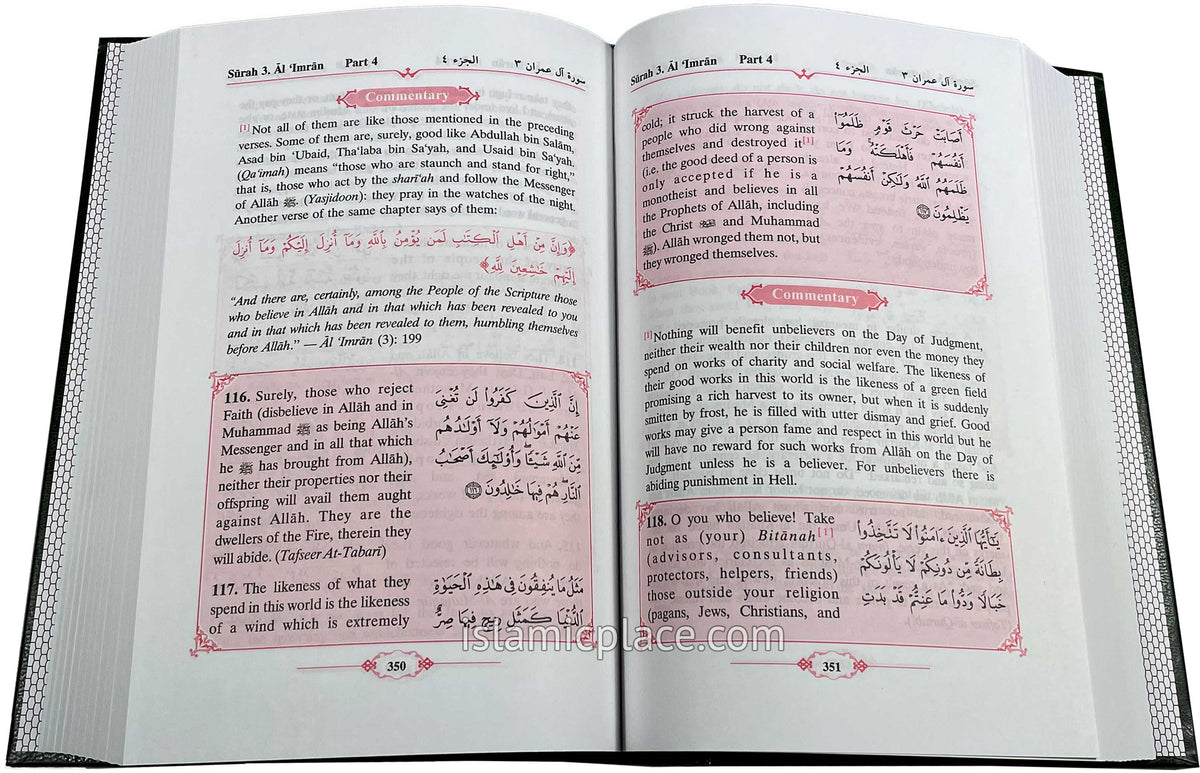 Sūrah 3. Āl ‘Imrān Part 4 الجزء ٤ سورة آل عمران ٣
Commentary
[1]Not all of them are like those mentioned in the preceding
verses. Some of them are, surely, good like Abdullah bin Salām,
Asad bin ‘Ubaid, Tha‘laba bin Sa‘yah, and Usaid bin Sa‘yah,
(Qa‘imah) means “those who are staunch and stand for right,”
that is, those who act by the sharī‘ah and follow the Messenger
of Allāh ﷺ (Yasjidoon): they pray in the watches of the night.
Another verse of the same chapter says of them:
﴿وَإِنَّ مِنْ أَهْلِ ٱلْكِتَـٰبِ لَمَن يُؤْمِنُ بِٱللَّهِ وَمَآ أُنزِلَ إِلَيْكُمْ وَمَآ أُنزِلَ
إِلَيْهِمْ خَـٰشِعِينَ لِلَّهِ﴾
“And there are, certainly, among the People of the Scripture those
who believe in Allāh and in that which has been revealed to you
and in that which has been revealed to them, humbling themselves
before Allāh.” — Āl ‘Imrān (3): 199
116. Surely, those who reject
Faith (disbelieve in Allāh and in
Muhammad ﷺ as being Allāh’s
Messenger and in all that which
he ﷺ has brought from Allāh),
neither their properties nor their
offspring will avail them aught
against Allāh. They are the
dwellers of the Fire, therein they
will abide. (Tafseer At-Tabarī)
إِنَّ ٱلَّذِينَ كَفَرُوا۟ لَن تُغْنِىَ
عَنْهُمْ أَمْوَٰلُهُمْ وَلَآ أَوْلَـٰدُهُم
مِّنَ ٱللَّهِ شَيْـًٔا وَأُو۟لَـٰٓئِكَ أَصْحَـٰبُ
ٱلنَّارِ هُمْ فِيهَا خَـٰلِدُونَ ١١٦
117. The likeness of what they
spend in this world is the likeness
of a wind which is extremely
مَثَلُ مَا يُنفِقُونَ فِى هَـٰذِهِ ٱلْحَيَوٰةِ
ٱلدُّنْيَا كَمَثَلِ رِيحٍ فِيهَا صِرٌّ
350
Sūrah 3. Āl ‘Imrān Part 4 الجزء ٤ سورة آل عمران ٣
cold; it struck the harvest of a
people who did wrong against
themselves and destroyed it[1]
(i.e. the good deed of a person is
only accepted if he is a
monotheist and believes in all
the Prophets of Allāh, including
the Christ and Muhammad
ﷺ). Allāh wronged them not, but
they wronged themselves.
أَصَابَتْ حَرْثَ قَوْمٍ ظَلَمُوٓا۟
أَنفُسَهُمْ فَأَهْلَكَتْهُ وَمَا
ظَلَمَهُمُ ٱللَّهُ وَلَـٰكِنْ أَنفُسَهُمْ
يَظْلِمُونَ ١١٧
Commentary
[1]Nothing will benefit unbelievers on the Day of Judgment,
neither their wealth nor their children nor even the money they
spend on works of charity and social welfare. The likeness of
their good works in this world is the likeness of a green field
promising a rich harvest to its owner, but when it is suddenly
smitten by frost, he is filled with utter dismay and grief. Good
works may give a person fame and respect in this world but he
will have no reward for such works from Allāh on the Day of
Judgment unless he is a believer. For unbelievers there is
abiding punishment in Hell.
118. O you who believe! Take
not as (your) Bitānah[1]
(advisors, consultants,
protectors, helpers, friends)
those outside your religion
(pagans, Jews, Christians, and
يَـٰٓأَيُّهَا ٱلَّذِينَ ءَامَنُوا۟ لَا تَتَّخِذُوا۟
بِطَانَةً مِّن دُونِكُمْ لَا يَأْلُونَكُمْ
خَبَالًا وَدُّوا۟ مَا عَنِتُّمْ قَدْ بَدَتِ
351
islamicplace.com